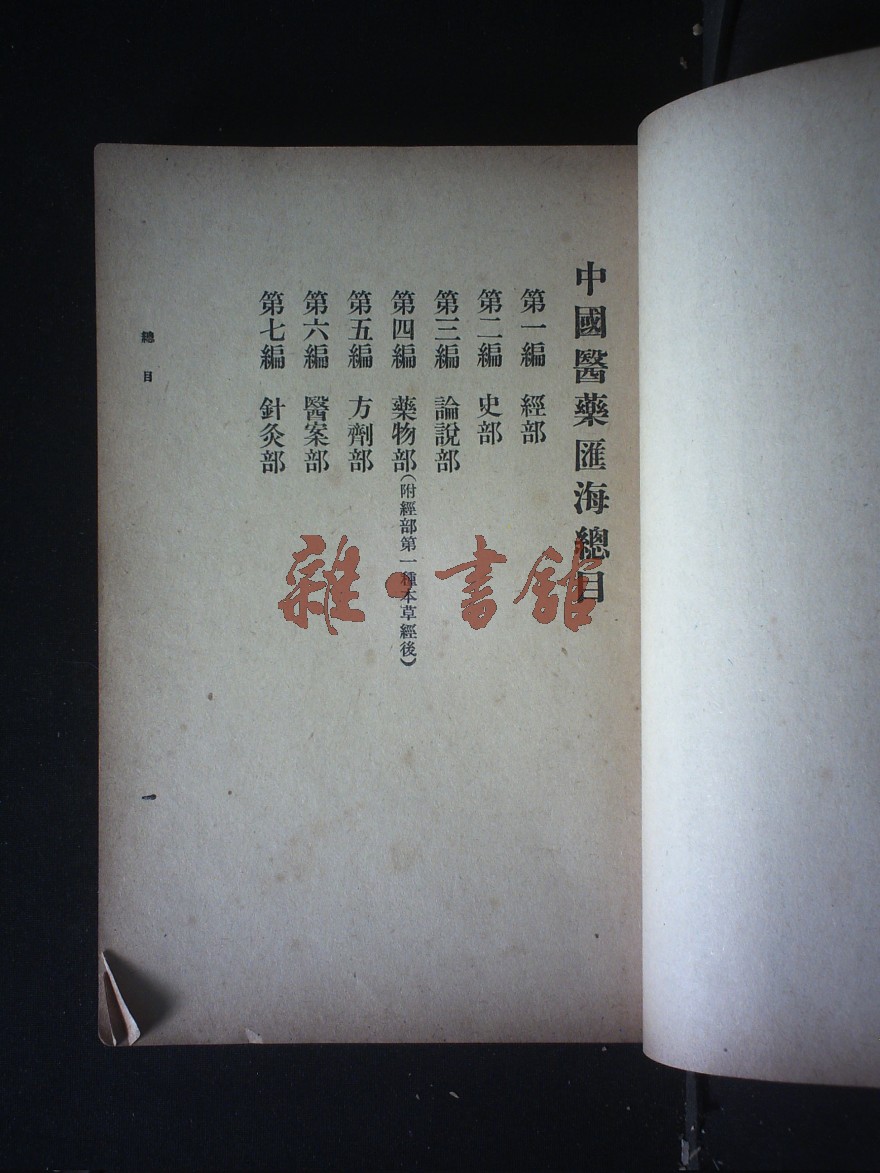 中國醫藥匯海總目
第一編　經部
第二編　史部
第三編　論說部
第四編　藥物部(附經部第一種本草經後)
第五編　方劑部
第六編　醫案部
第七編　針灸部
總目
一
雜·書館